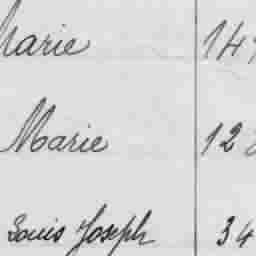 Marie 14
Marie 12
Louis Joseph 34